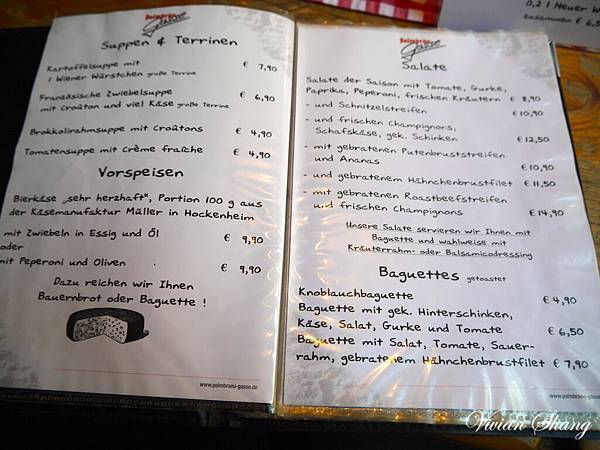 Palmbräu
Gasse
Suppen & Terrinen
Kartoffelsuppe mit
1 Wiener Würstchen große Terrine € 7,90
Französische Zwiebelsuppe
mit Croûton und viel Käse große Terrine € 6,90
Brokkolirahmsuppe mit Croûtons € 4,90
Tomatensuppe mit Crème fraîche € 4,90
Vorspeisen
Bierkäse „sehr herzhaft", Portion 100 g aus
der Käsemanufaktur Müller in Hockenheim
mit Zwiebeln in Essig und Öl € 9,90
oder
mit Peperoni und Oliven € 9,90
Dazu reichen wir Ihnen
Bauernbrot oder Baguette !
www.palmbraeu-gasse.de
Palmbräu
Gasse
Salate
Salate der Saison mit Tomate, Gurke,
Paprika, Peperoni, frischen Kräutern € 8,90
- und Schnitzelstreifen €10,90
- und frischen Champignons,
Schafskäse, gek. Schinken € 12,50
- mit gebratenen Putenbruststreifen
und Ananas €10,90
- und gebratenem Hähnchenbrustfilet € 11,50
- mit gebratenen Roastbeefstreifen
und frischen Champignons € 14,90
Unsere Salate servieren wir Ihnen mit
Baguette und wahlweise mit
Kräuterrahm- oder Balsamicodressing
Baguettes getoastet
Knoblauchbaguette € 4,90
Baguette mit gek. Hinterschinken,
Käse, Salat, Gurke und Tomate € 6,50
Baguette mit Salat, Tomate, Sauer-
rahm, gebratenem Hähnchenbrustfilet € 7,90
www.palmbraeu-gasse.de
0,2 l Neuer W
zusammen € 6,5
Vivian Shang